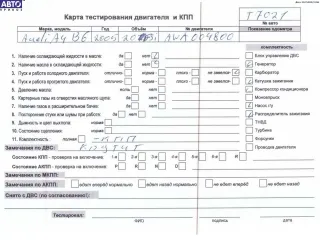 АВТО
Карта тестирования двигателя и КПП
Т7021
№ авто
Марка, модель
Год
Объём
№ двигателя
Показания одометра
Audi A4 B6 2005 20i AWA004800
комплектность
1. Наличие охлаждающей жидкости в масле: да нет
2. Наличие масла в охлаждающей жидкости: да нет
3. Пуск и работа холодного двигателя: плохо отлично не завелся
4. Пуск и работа горячего двигателя: плохо отлично не завелся
5. Давление масла: плохо отлично
6. Картерные газы из отверстия масляного щупа: да нет
7. Наличие газов в расширительном бачке: да нет
8. Посторонние стуки или шумы при работе: да нет
9. Дымность и цвет выхлопа: норма
10. Состояние сцепления: норма
11. Комплектность: полная -КПП
Блок управления ДВС
Генератор
Карбюратор
Катушка зажигания
Компрессор кондиционера
Моновпрыск
Насос гу
Распределитель зажигания
ТНВД
Турбина
Форсунки
Провода двигателя
Замечания по ДВС:
Состояние КПП - проверка на включение: 1-я 2-я 3-я 4-я 5-я R
Состояние АКПП - проверка на включение: P R N D
Замечания по МКПП:
Замечания по АКПП: едет вперёд нормально едет назад нормально не едет вперёд не едет назад
Снято с ДВС (по согласованию):
Тестировал:
ФИО
подпись
дата